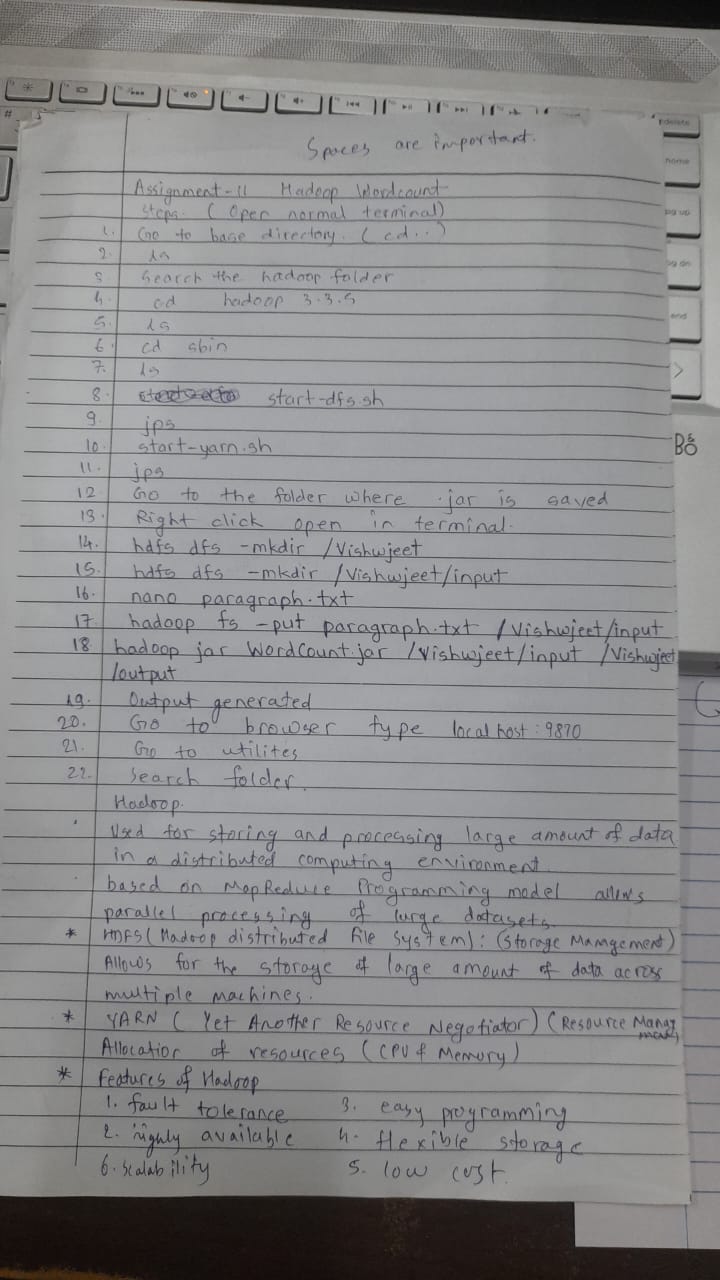 Spaces are important.
Assignment-11 Hadoop Wordcount
Steps. (Open normal terminal)
1. Go to base directory. (cd..)
2. ls
3. Search the hadoop folder
4. cd hadoop 3.3.5
5. ls
6. cd sbin
7. ls
8. start-dfs.sh
9. jps
10. start-yarn.sh
11. jps
12 Go to the folder where .jar is saved
13. Right click open in terminal.
14. hdfs dfs -mkdir /Vishwjeet
15. hdfs dfs -mkdir /Vishwjeet/input
16. nano paragraph.txt
17 hadoop fs -put paragraph.txt /Vishwjeet/input
18 hadoop jar WordCount.jar /Vishwjeet/input /Vishwjeet
/output
19. Output generated
20. Go to browser type localhost:9870
21. Go to utilites
22. Search folder.
Hadoop.
Used for storing and processing large amount of data
in a distributed computing environment.
based on MapReduce Programming model allows
parallel processing of large datasets.
* HDFS (Hadoop distributed File System): (Storage Mamgement)
Allows for the storage of large amount of data across
multiple machines.
* YARN (Yet Another Resource Negotiator) (Resource
Allocation of resources (CPU & Memory)
* Features of Hadoop
1. fault tolerance 3. easy programming
2. highly available 4. flexible storage
6. scalability 5. low cost.
delete
home
pg up
pg dn
end
B&O